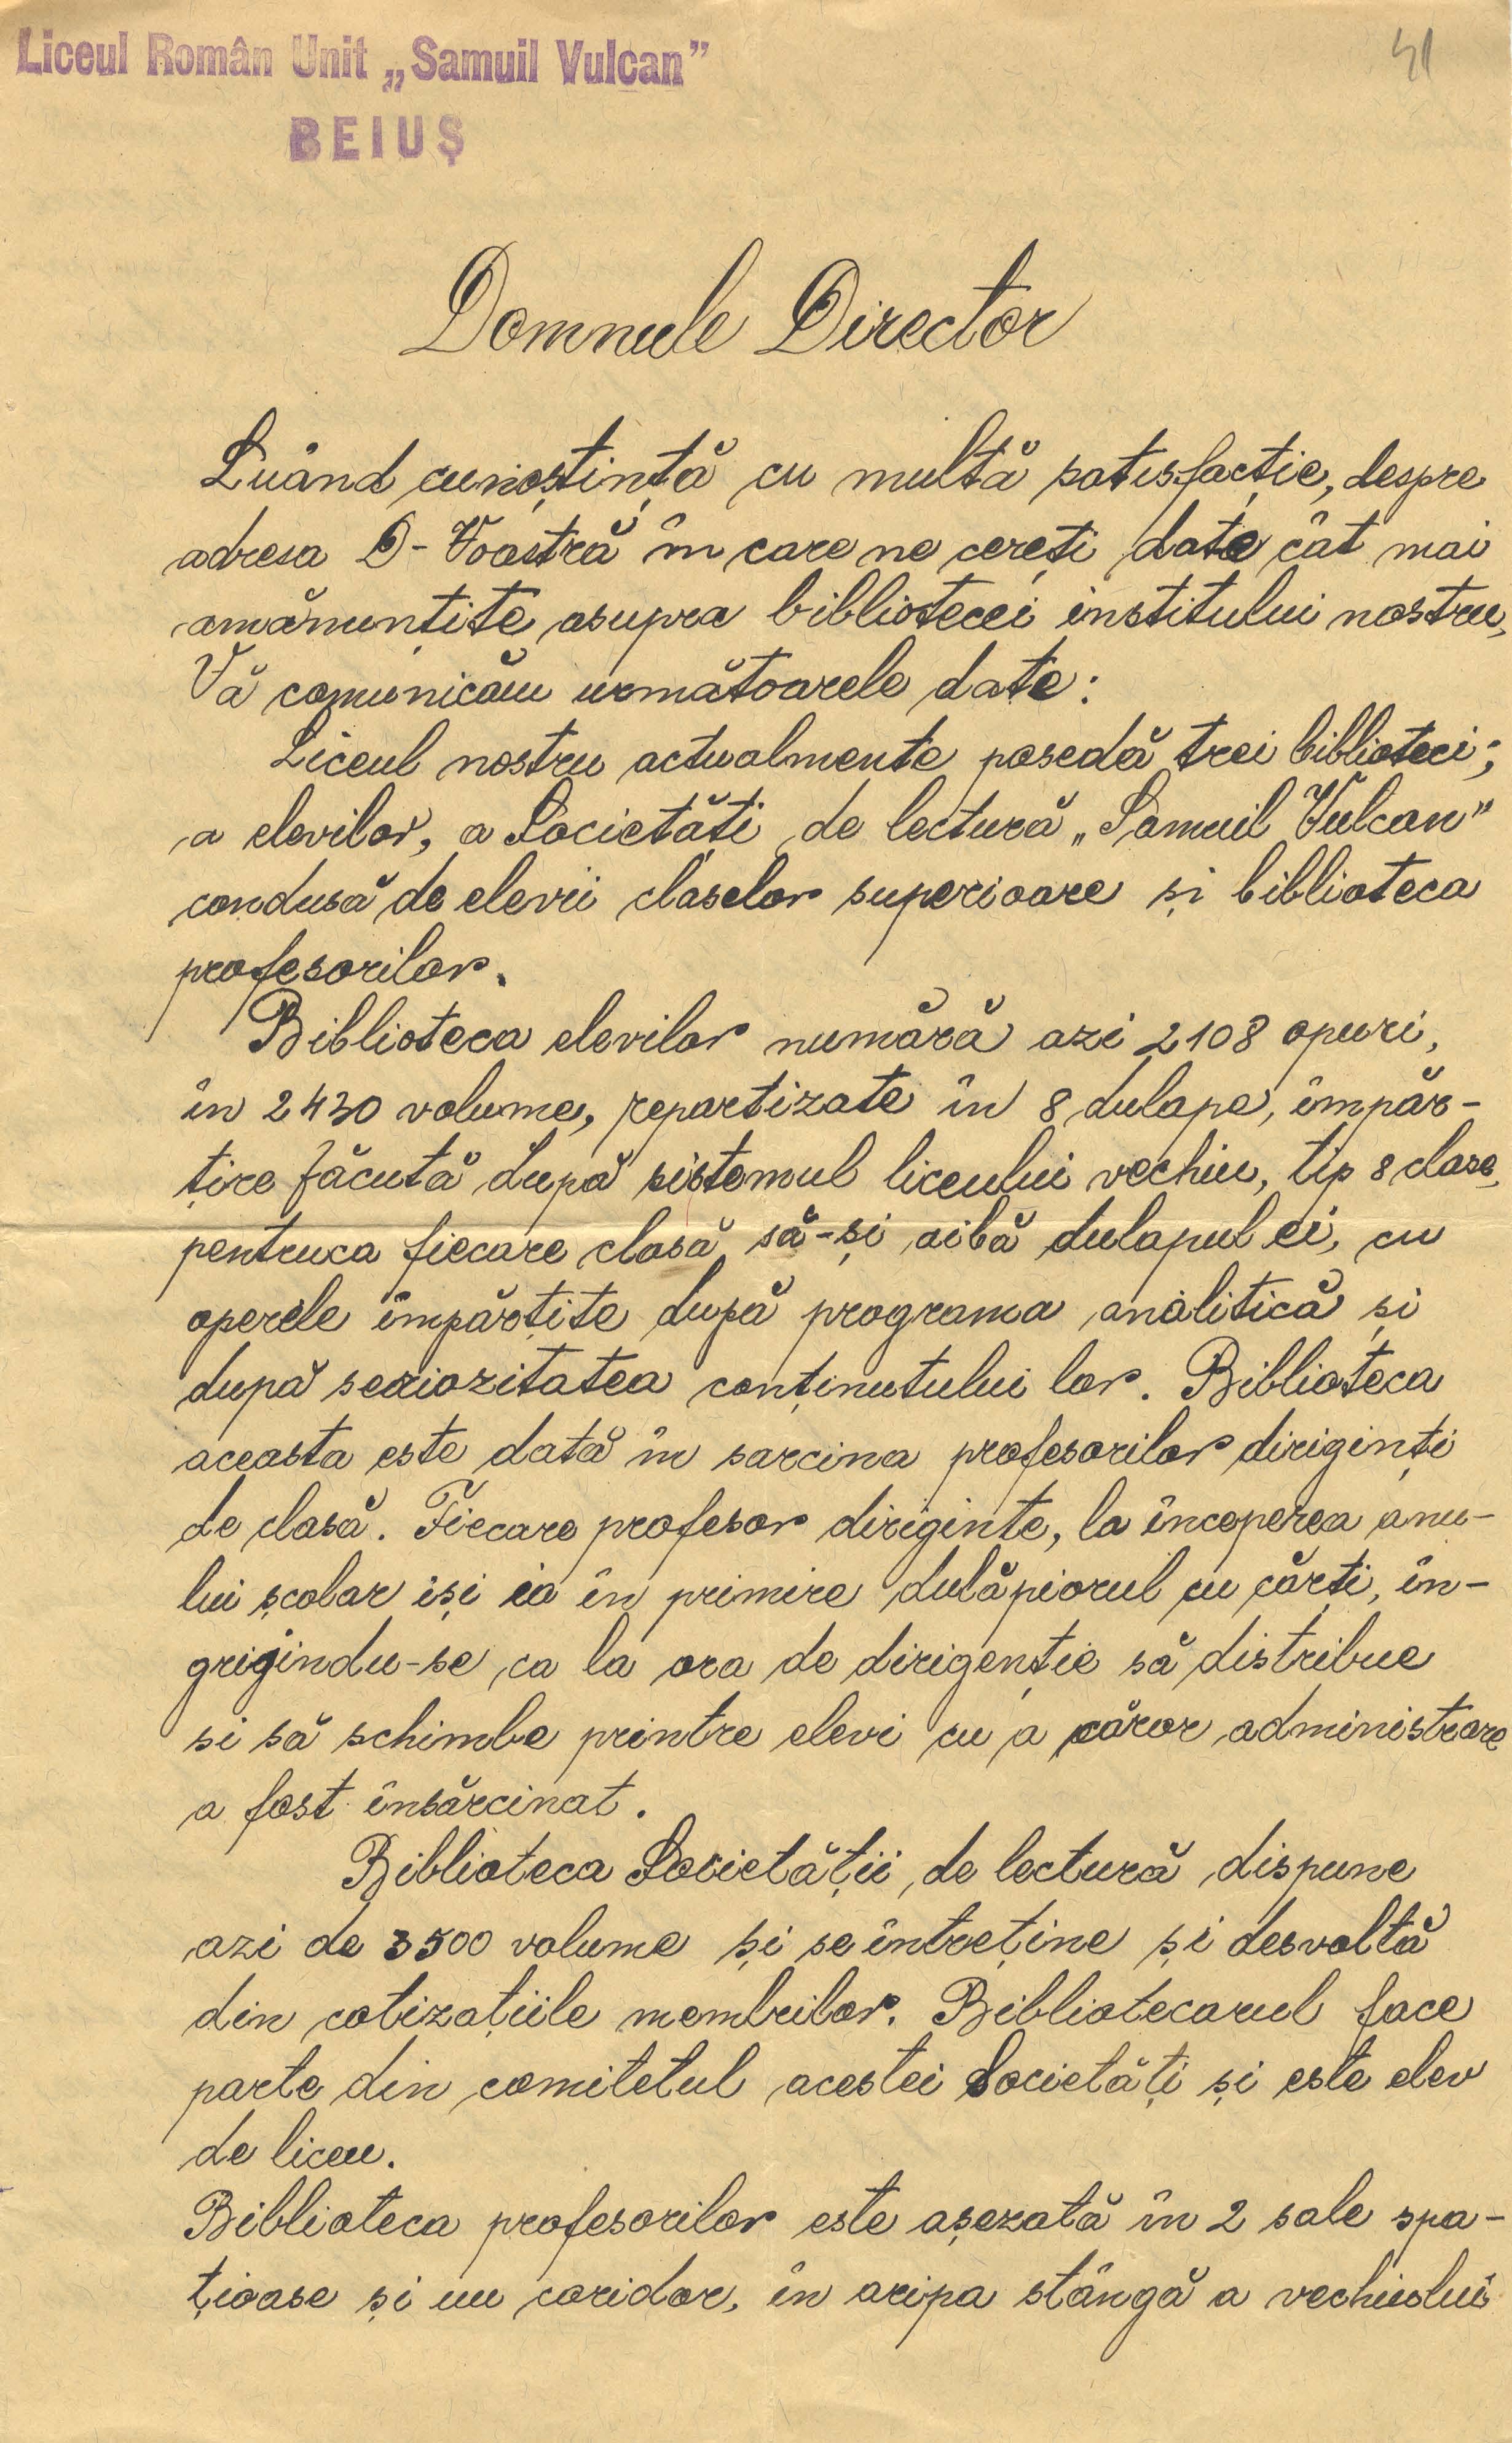 Liceul Român Unit „Samuil Vulcan”
BEIUȘ
41
Domnule Director
Luând cunoștință cu multă satisfacție, despre
adresa D-Voastră în care ne cereți date cât mai
amănunțite asupra bibliotecei institului nostru,
Vă comunicăm următoarele date:
Liceul nostru actualmente posedă trei biblioteci;
a elevilor, a Societăți de lectură „Samuil Vulcan”
condusă de elevii claselor superioare și biblioteca
profesorilor.
Biblioteca elevilor numără azi 2108 opuri,
în 2430 volume, repartizate în 8 dulape, împăr-
țire făcută după sistemul liceului vechiu, tip 8 clase,
pentruca fiecare clasă să-și aibă dulapul ei, cu
operele împărțite după programa analitică și
după seriozitatea conținutului lor. Biblioteca
aceasta este dată în sarcina profesorilor diriginți
de clasă. Fiecare profesor diriginte, la începerea anu-
lui școlar iși ia în primire dulăpiorul cu cărți, în-
grigindu-se ca la ora de dirigenție să distribue
si să schimbe printre elevi cu a căror administrare
a fost însărcinat.
Biblioteca Societății de lectură dispune
azi de 3500 volume și se întreține și desvoltă
din cotizațiile membrilor. Bibliotecarul face
parte din comitetul acestei Societăți și este elev
de liceu.
Biblioteca profesorilor este așezată în 2 sale spa-
țioase și un coridor, în aripa stângă a vechiului